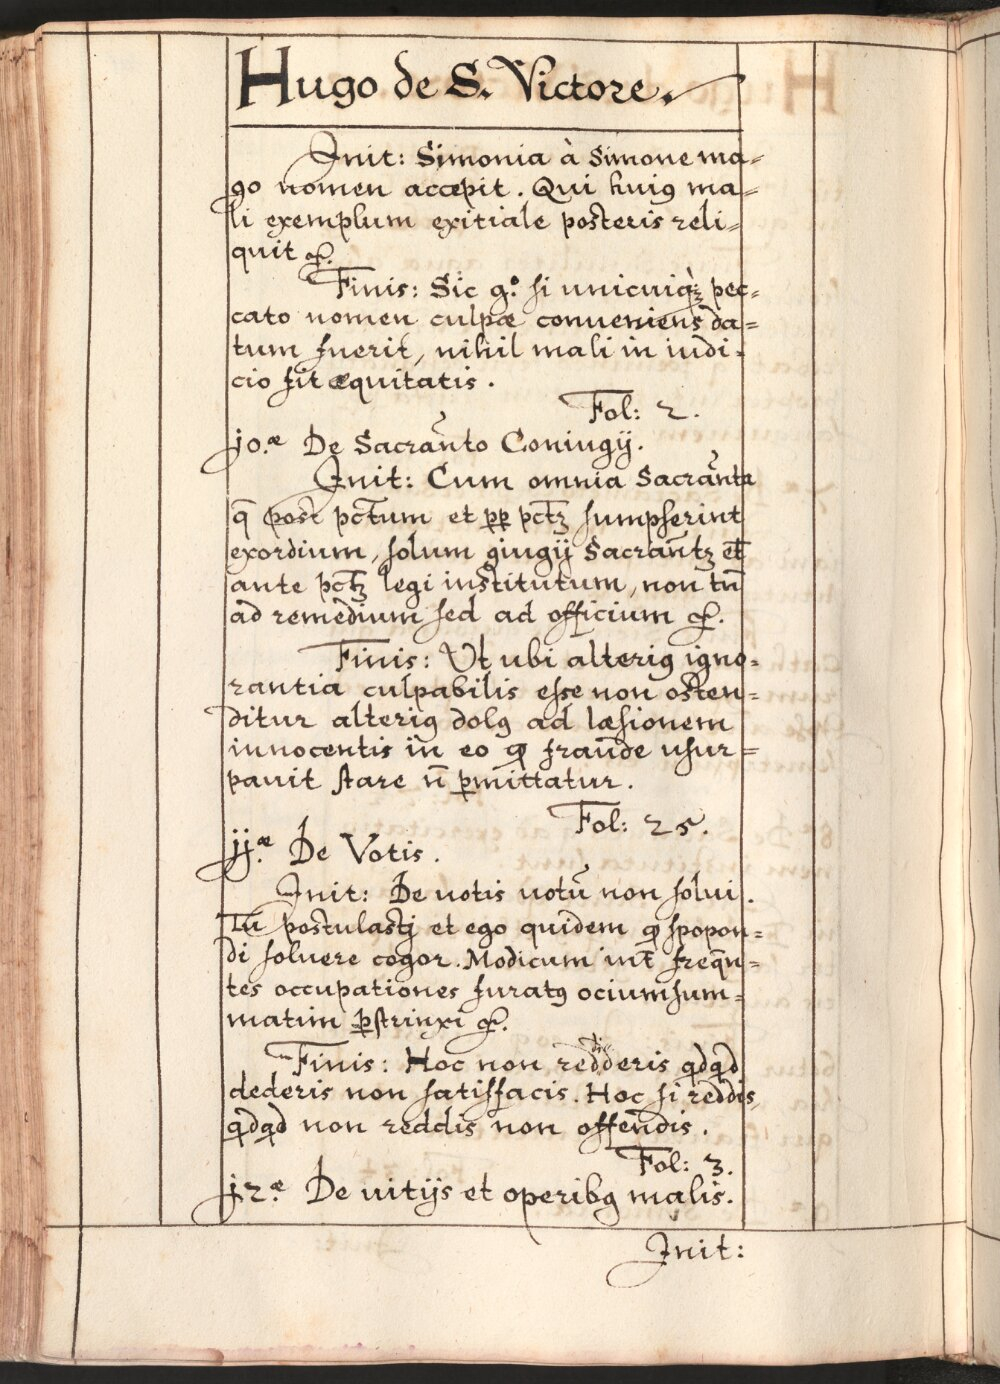 Hugo de S. Victore.
Init: Simonia à Simone ma=
go nomen accepit. Qui huiꝰ ma=
li exemplum exitiale posteris reli=
quit &.
Finis: Sic g.° si unicuiq̀ꝫ pec=
cato nomen culpæ conueniens da=
tum fuerit, nihil mali in iudi=
cio sit æquitatis.
Fol: 2.
jo.æ De Sacram̃to Coniugij.
Init: Cum omnia Sacram̃ta
q̄ post pctum et ꝓp pctꝫ sumpserint
exordium, solum ꝯiugij Sacram̃tꝫ et̄
ante pctꝫ legi institutum, non tm̄
ad remedium sed ad officium &.
Finis: Ut ubi alteriꝰ igno=
rantia culpabilis esse non osten=
ditur alteriꝰ dolꝰ ad læsionem
innocentis in eo qđ fraude usur=
pauit stare n̄ p̱mittatur.
Fol: 25.
jj.æ De Votis.
Init: De uotis uotū non solui.
Tu postulasti et ego quidem qđ spopon=
di soluere cogor. Modicum int̄ freq̄n=
tes occupationes furatꝰ ocium sum=
matim p̱strinxi &.
Finis: Hoc non redderis qdqd
dederis non satisfacis. Hoc si reddis,
qdqd non reddis non offendis.
Fol: 3.
j2.æ De uitijs et operibꝰ malis.
Init: